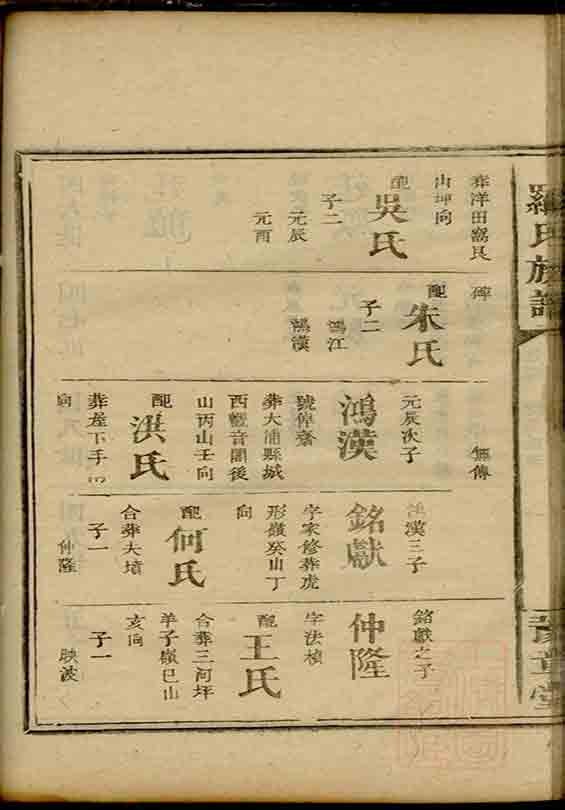 羅氏族譜
豫章堂
葬洋田窩艮
山坤向
配
吳氏
子二
元辰
元酉
碑
配
朱氏
子二
鴻江
鴻漢
無傳
元辰次子
鴻漢
號倬齋
葬大浦縣城
西觀音閣後
山丙山壬向
配
洪氏
葬屋下手
向
鴻漢三子
銘獻
字家修葬虎
形嶺癸山丁
向
配
何氏
合葬夫墳
子一
仲隆
銘獻之子
仲隆
字法楨
配
王氏
合葬三河坪
羊子嶺巳山
亥向
子一
映波